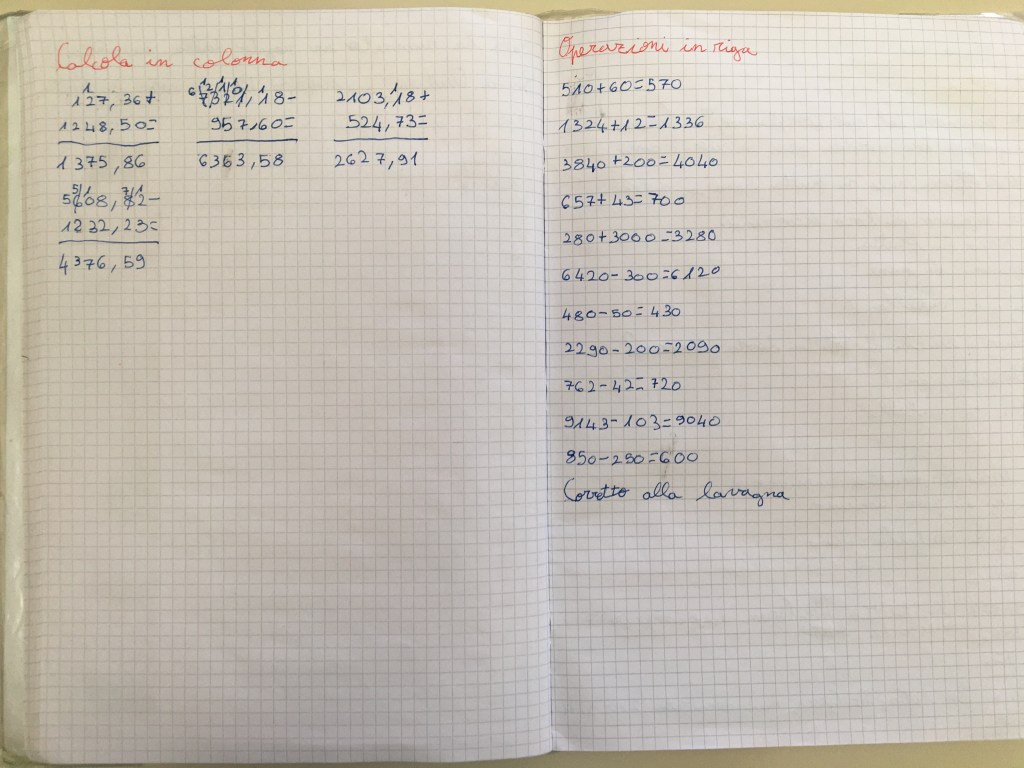 Calcola in colonna
127,36+ 7321,18- 2103,18+
1248,50= 957,60= 524,73=
1375,86 6363,58 2627,91
5608,82-
1232,23=
4376,59
Operazioni in riga
510+60=570
1324+12=1336
3840+200=4040
657+43=700
280+3000=3280
6420-300=6120
480-50=430
2290-200=2090
762-42=720
9143-103=9040
850-250=600
Corretto alla lavagna